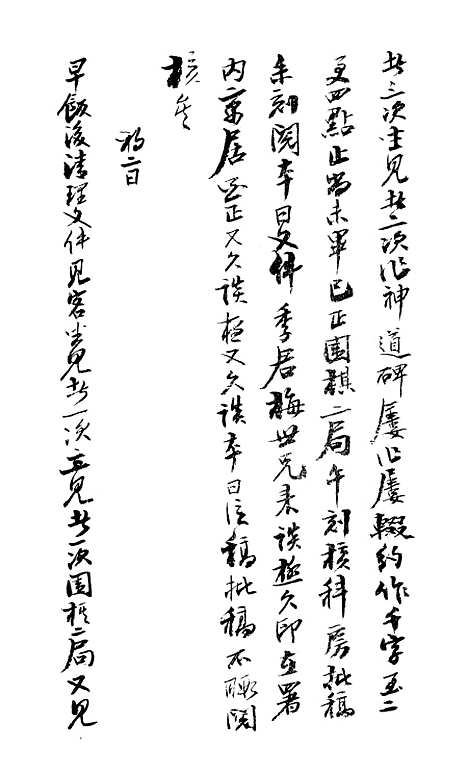 者三次立見者二次作神道碑屢作屢輟約作千字至二
更四點止尚未畢巳正圍棋二局午刻核科房批稿
未刻閱本日文件季君梅世兄來談極久即在署
內寓居正又久談極又久談本日信稿批稿不暇閱
核矣
初二日
早飯後清理文件見客坐見者一次立見者一次圍棋二局又見